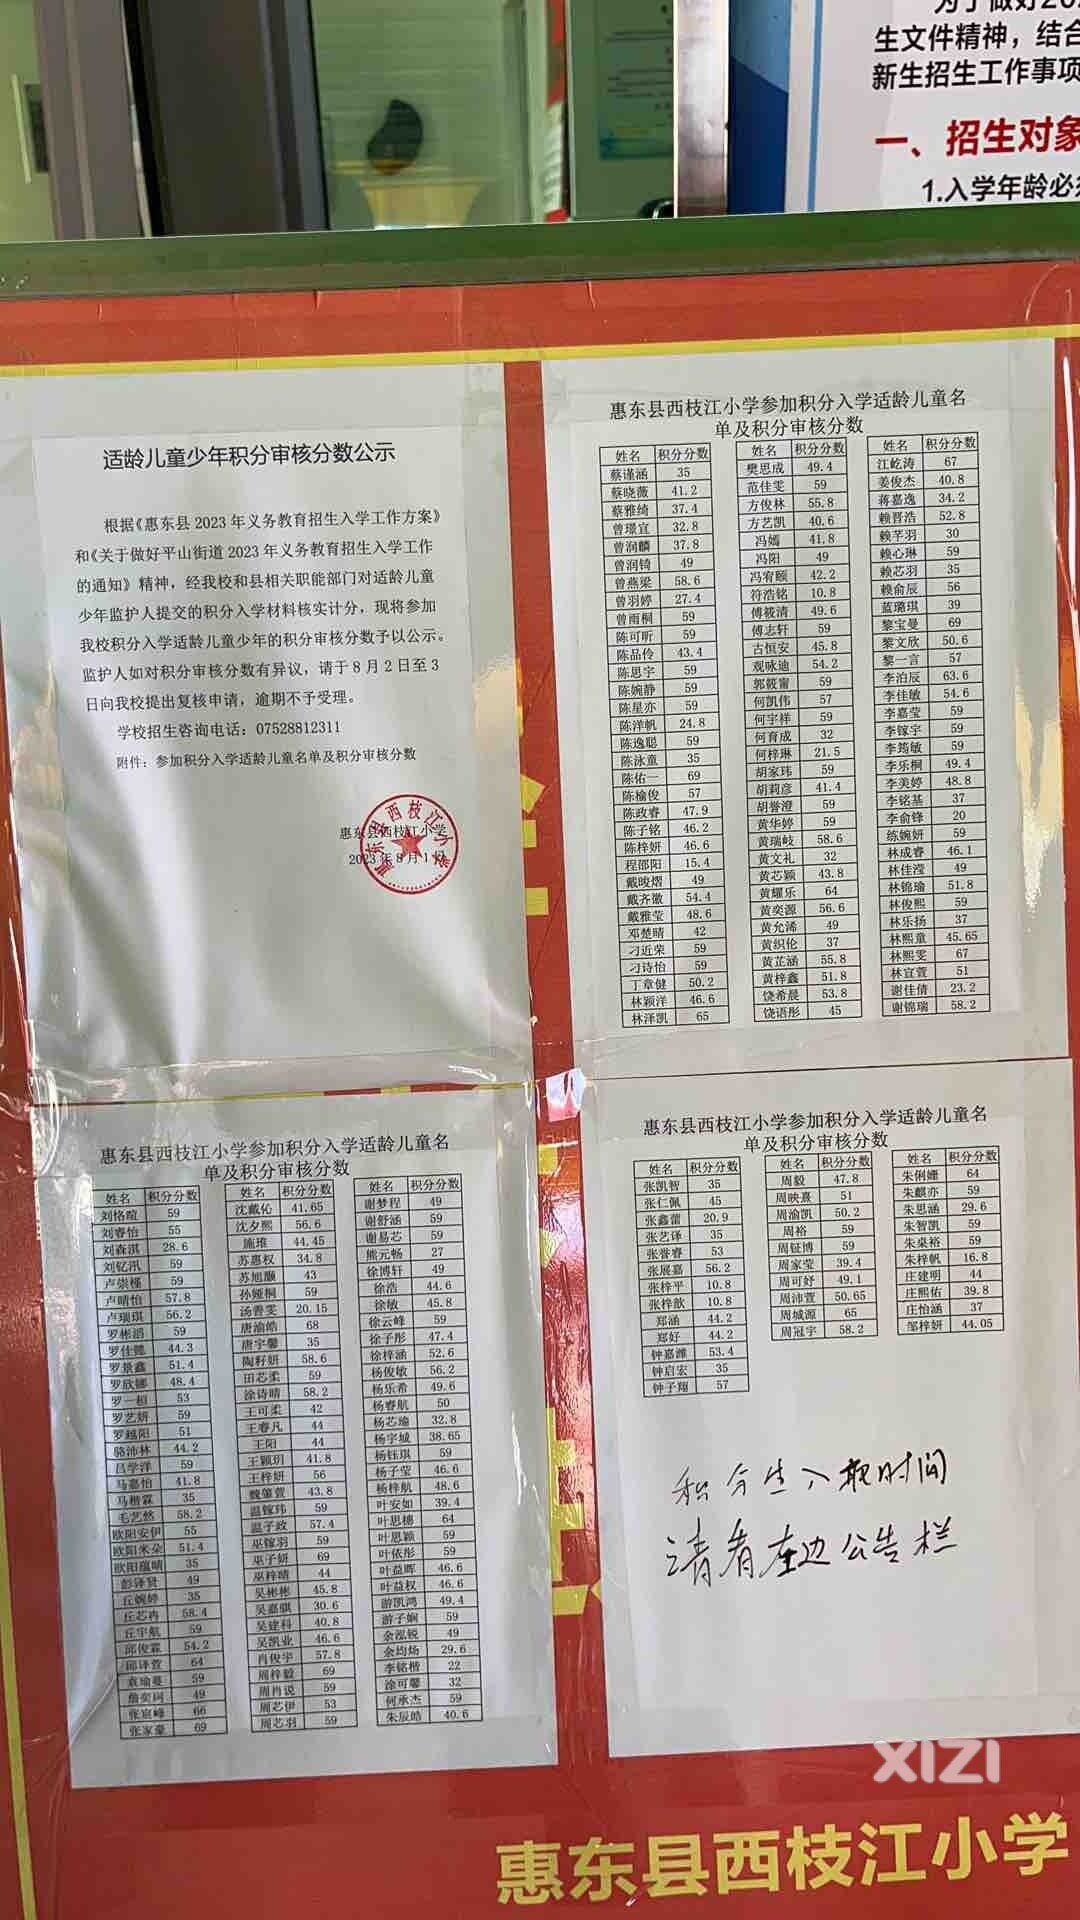 为了做好202
生文件精神，结合
新生招生工作事项
一、招生对象
1.入学年龄必须
适龄儿童少年积分审核分数公示
根据《惠东县2023年义务教育招生入学工作方案》
和《关于做好平山街道2023年义务教育招生入学工作
的通知》精神，经我校和县相关职能部门对适龄儿童
少年监护人提交的积分入学材料核实计分，现将参加
我校积分入学适龄儿童少年的积分审核分数予以公示。
监护人如对积分审核分数有异议，请于8月2日至3
日向我校提出复核申请，逾期不予受理。
学校招生咨询电话：07528812311
附件：参加积分入学适龄儿童名单及积分审核分数
惠东县西枝江小学
2023年8月1日
惠东县西枝江小学
惠东县西枝江小学参加积分入学适龄儿童名
单及积分审核分数
姓名 积分分数
蔡谨涵 35
蔡晓薇 41.2
蔡雅绮 37.4
曾璟宜 32.8
曾润麟 37.8
曾润锜 49
曾燕梁 58.6
曾羽婷 27.4
曾雨桐 59
陈可昕 59
陈品伶 43.4
陈思宇 59
陈婉静 59
陈星亦 59
陈洋帆 24.8
陈逸聪 59
陈泳童 35
陈佑一 69
陈榆俊 57
陈政睿 47.9
陈子铭 46.2
陈梓妍 46.6
程邵阳 15.4
戴晙熠 49
戴齐徽 54.4
戴雅莹 48.6
邓楚晴 42
刁近荣 59
刁诗怡 59
丁章健 50.2
林颖洋 46.6
林泽凯 65
姓名 积分分数
樊思成 49.4
范佳雯 59
方俊林 55.8
方艺凯 40.6
冯嫣 41.8
冯阳 49
冯宥颐 42.2
符浩铭 10.8
傅筱清 49.6
傅志轩 59
古恒安 45.8
观咏迪 54.2
郭筱甯 59
何凯伟 57
何宇祥 59
何育成 32
何梓琳 21.5
胡家玮 59
胡莉彦 41.4
胡誉澄 59
黄华婷 59
黄瑞岐 58.6
黄文礼 32
黄芯颖 43.8
黄耀乐 64
黄奕源 56.6
黄允浠 49
黄织伦 37
黄芷涵 55.8
黄梓鑫 51.8
饶希晨 53.8
饶语彤 45
姓名 积分分数
江屹涛 67
姜俊杰 40.8
蒋嘉逸 34.2
赖晋浩 52.8
赖芊羽 30
赖心琳 59
赖芯羽 35
赖俞辰 56
蓝璐琪 39
黎宝曼 69
黎文欣 50.6
黎一言 57
李泊辰 63.6
李佳敏 54.6
李嘉莹 59
李镓宇 59
李筠敏 59
李乐桐 49.4
李美婷 48.8
李铭基 37
李俞锋 20
练婉妍 59
林成睿 46.1
林佳滢 49
林锦瑜 51.8
林俊熙 59
林乐扬 37
林熙童 45.65
林熙雯 67
林宣萱 51
谢佳倩 23.2
谢锦瑞 58.2
惠东县西枝江小学参加积分入学适龄儿童名
单及积分审核分数
姓名 积分分数
刘恪暄 59
刘睿怡 55
刘森淇 28.6
刘钇汛 59
卢崇槿 59
卢晴怡 57.8
卢瑞琪 56.2
罗彬滔 59
罗佳懿 44.3
罗景鑫 51.4
罗欣娜 48.4
罗一桓 53
罗艺妍 59
罗越阳 51
骆沛林 44.2
吕学洋 59
马嘉怡 41.8
马楷霖 35
毛艺然 58.2
欧阳安伊 55
欧阳米朵 51.4
欧阳蕴晴 35
彭译贤 49
丘婉婷 35
丘芯冉 58.4
丘宇航 59
邱俊霖 54.2
邱译萱 64
袁瑜蔓 59
詹奕珂 49
张宸峰 66
张家豪 69
姓名 积分分数
沈戴伈 41.65
沈夕熙 56.6
施堆 44.45
苏惠权 34.8
苏旭灏 43
孙娅桐 59
汤善雯 20.15
唐渝皓 68
唐宇馨 35
陶籽妍 58.6
田芯柔 59
涂诗晴 58.2
王可柔 42
王睿凡 44
王阳 44
王颖玥 41.8
王梓妍 56
魏肇萱 43.8
温镓玮 59
温子政 57.4
巫镓羽 59
巫子妍 69
巫梓晴 44
吴彬彬 45.8
吴嘉骐 30.6
吴建科 40.8
吴凯业 46.6
肖俊宇 57.8
周梓毅 69
周肖说 59
周芯伊 53
周芯羽 59
姓名 积分分数
谢梦程 49
谢舒涵 59
谢易芯 59
熊元畅 27
徐博轩 49
徐浩 44.6
徐敏 45.8
徐云峰 59
徐子彤 47.4
徐梓涵 52.6
杨俊敏 56.2
杨乐希 49.6
杨睿航 50
杨芯瑜 32.8
杨宇城 38.65
杨钰琪 59
杨子莹 46.6
杨梓航 48.6
叶安如 39.4
叶思穗 64
叶思颖 59
叶依彤 59
叶益晖 46.6
叶益权 46.6
游凯鸿 49.4
游子娴 59
余泓锐 49
余均炀 29.6
李铭楷 22
涂可馨 32
何承杰 59
朱辰皓 40.6
惠东县西枝江小学参加积分入学适龄儿童名
单及积分审核分数
姓名 积分分数
张凯智 35
张仁佩 45
张鑫蕾 20.9
张艺译 35
张誉睿 53
张展嘉 56.2
张梓平 10.8
张梓歆 10.8
郑涵 44.2
郑好 44.2
钟嘉濰 53.4
钟启宏 35
钟子翔 57
姓名 积分分数
周毅 47.8
周映熹 51
周渝凯 50.2
周裕 59
周钲博 59
周家莹 39.4
周可妤 49.1
周沛萱 50.65
周城源 65
周冠宇 58.2
姓名 积分分数
朱俐姗 64
朱麒亦 59
朱思涵 29.6
朱智凯 59
朱桌裕 59
朱梓帆 16.8
庄建明 44
庄熙佑 39.8
庄怡涵 37
邹梓妍 44.05
积分生入取时间
请看左边公告栏
XIZI
惠东县西枝江小学